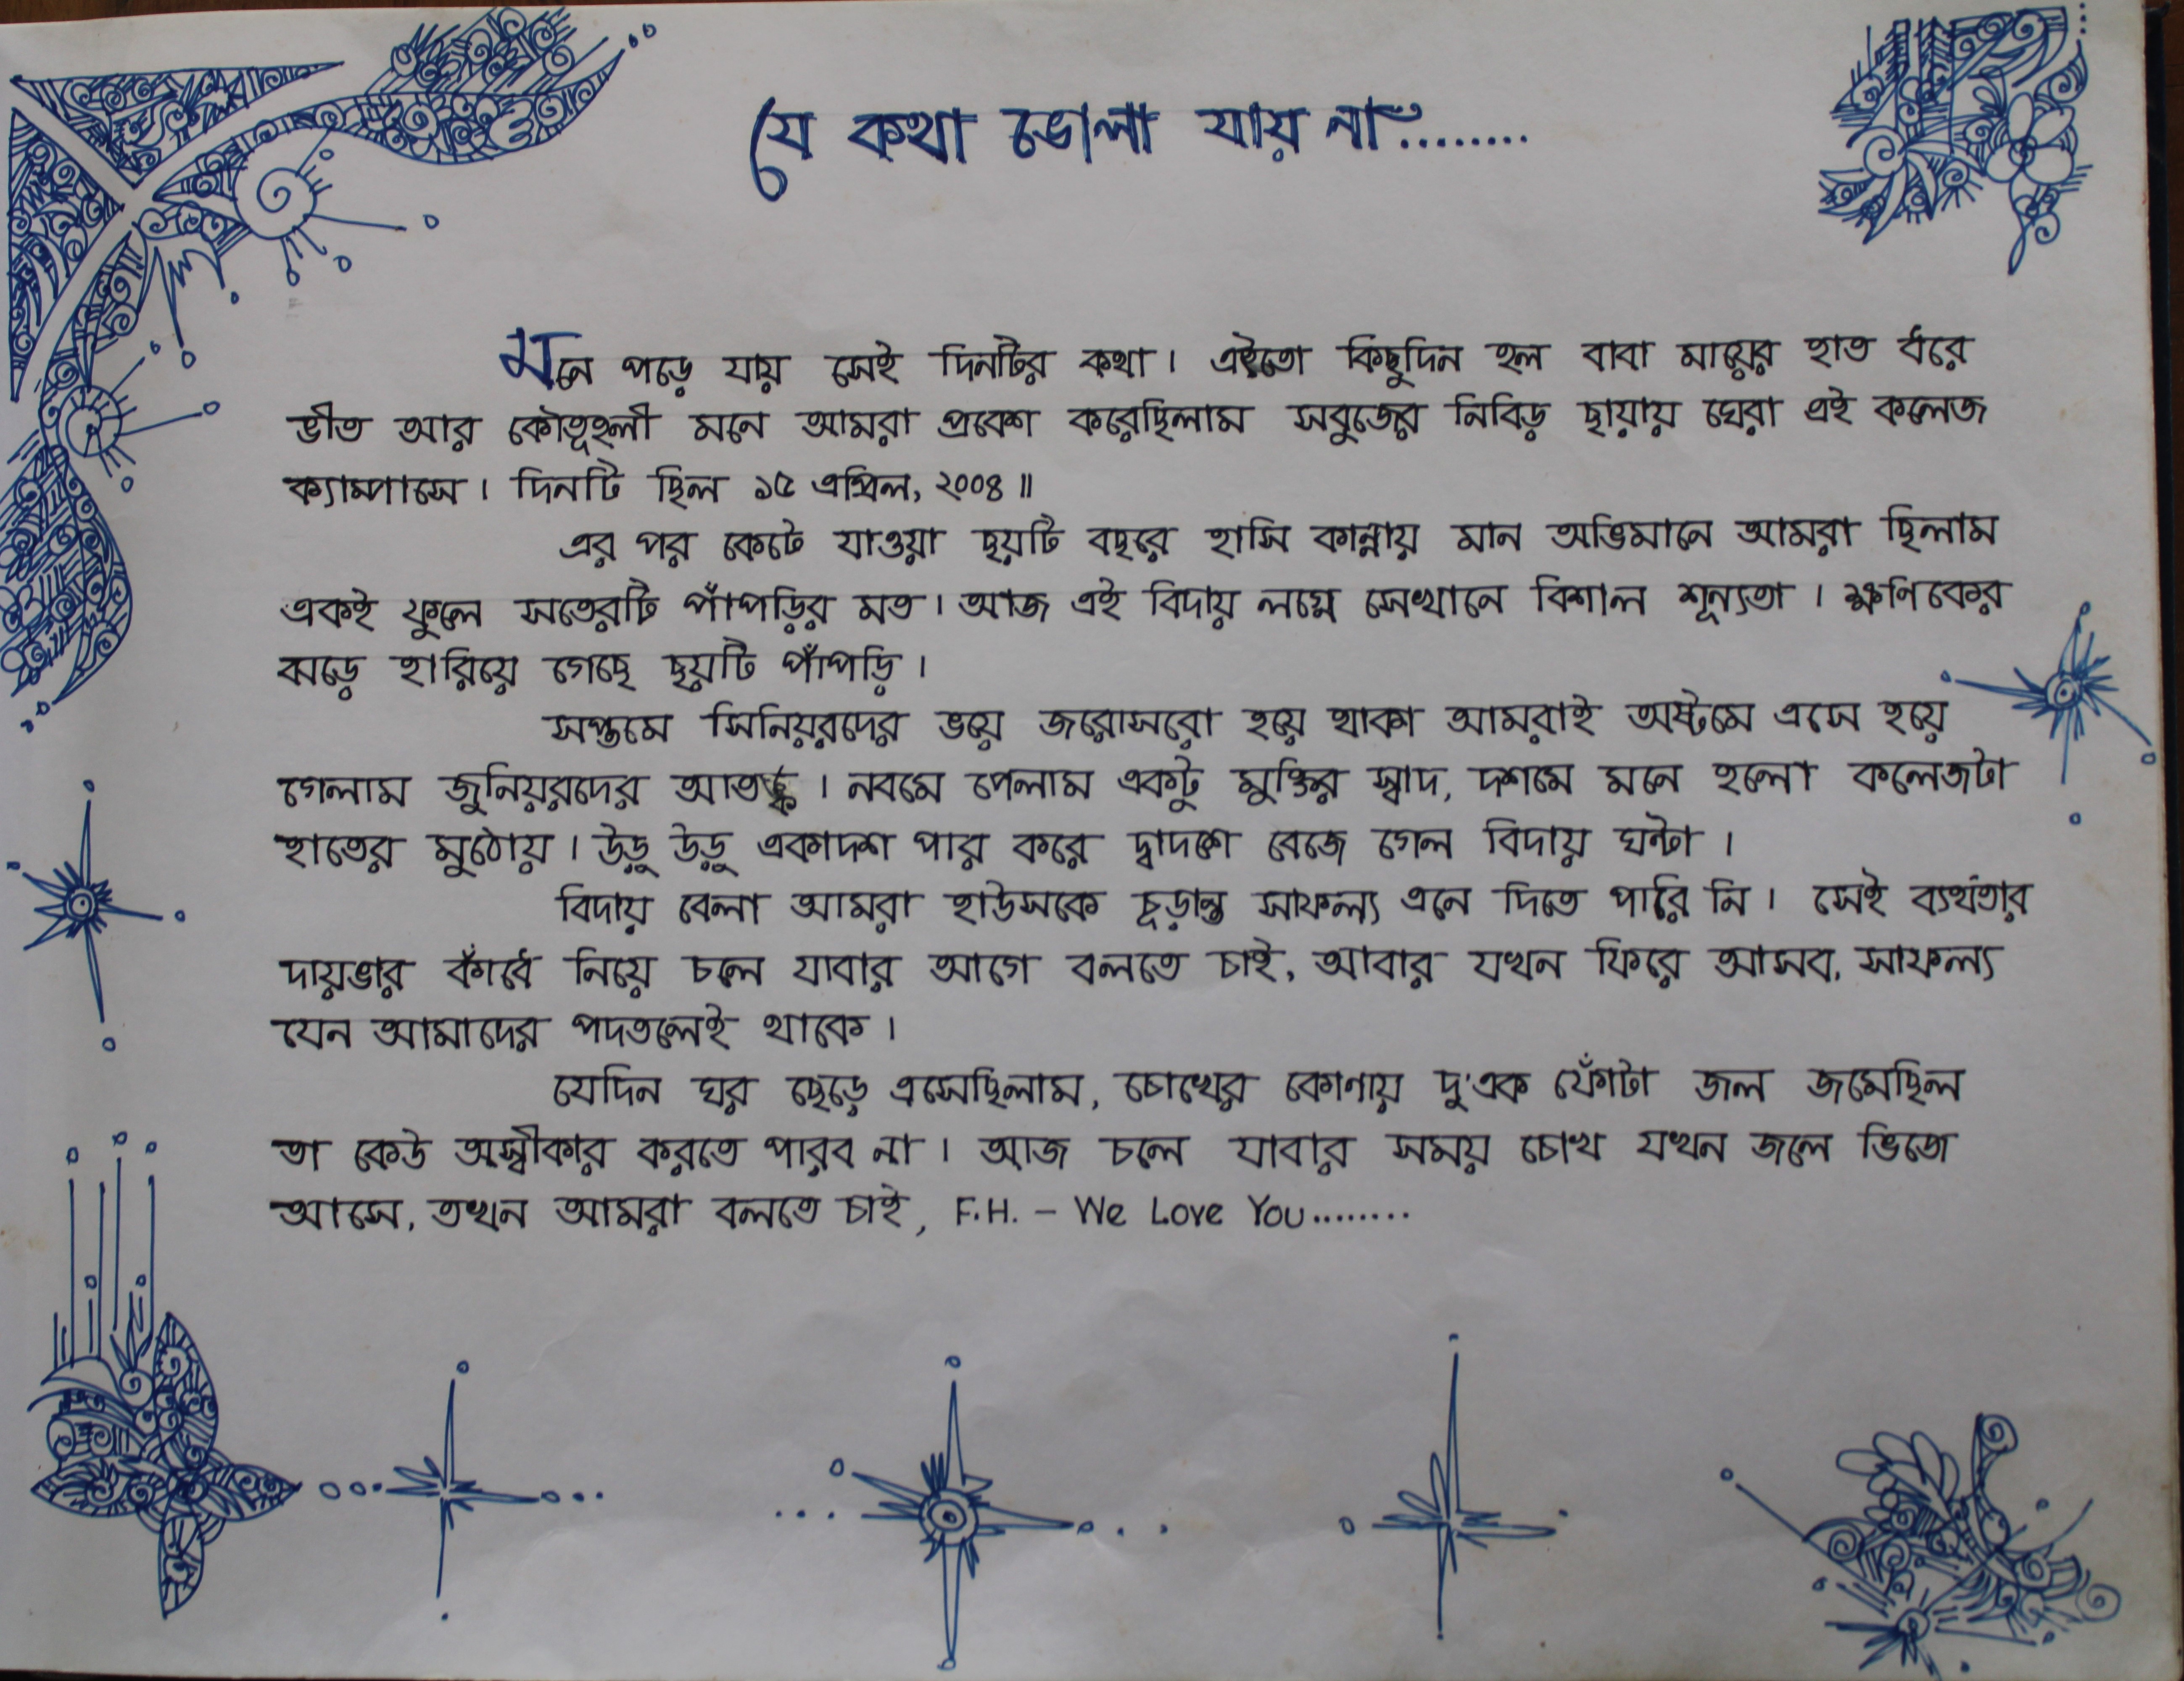 যে কথা ভোলা যায় না........
মনে পড়ে যায় সেই দিনটির কথা। এইতো কিছুদিন হল বাবা মায়ের হাত ধরে
ভীত আর কৌতূহলী মনে আমরা প্রবেশ করেছিলাম সবুজের নিবিড় ছায়ায় ঘেরা এই কলেজ
ক্যাম্পাসে। দিনটি ছিল ১৫ এপ্রিল, ২০০৪॥
এর পর কেটে যাওয়া ছয়টি বছরে হাসি কান্নায় মান অভিমানে আমরা ছিলাম
একই ফুলে সতেরটি পাঁপড়ির মত। আজ এই বিদায় লগ্নে সেখানে বিশাল শূন্যতা। ক্ষণিকের
ঝড়ে হারিয়ে গেছে ছয়টি পাঁপড়ি।
সপ্তমে সিনিয়রদের ভয়ে জরোসরো হয়ে থাকা আমরাই অষ্টমে এসে হয়ে
গেলাম জুনিয়রদের আতঙ্ক। নবমে পেলাম একটু মুক্তির স্বাদ, দশমে মনে হলো কলেজটা
হাতের মুঠোয়। উড়ু উড়ু একাদশ পার করে দ্বাদশে বেজে গেল বিদায় ঘন্টা।
বিদায় বেলা আমরা হাউসকে চূড়ান্ত সাফল্য এনে দিতে পারি নি। সেই ব্যর্থতার
দায়ভার কাঁধে নিয়ে চলে যাবার আগে বলতে চাই, আবার যখন ফিরে আসব, সাফল্য
যেন আমাদের পদতলেই থাকে।
যেদিন ঘর ছেড়ে এসেছিলাম, চোখের কোণায় দু'এক ফোঁটা জল জমেছিল
তা কেউ অস্বীকার করতে পারব না। আজ চলে যাবার সময় চোখ যখন জলে ভিজে
আসে, তখন আমরা বলতে চাই, F.H. - We Love You........